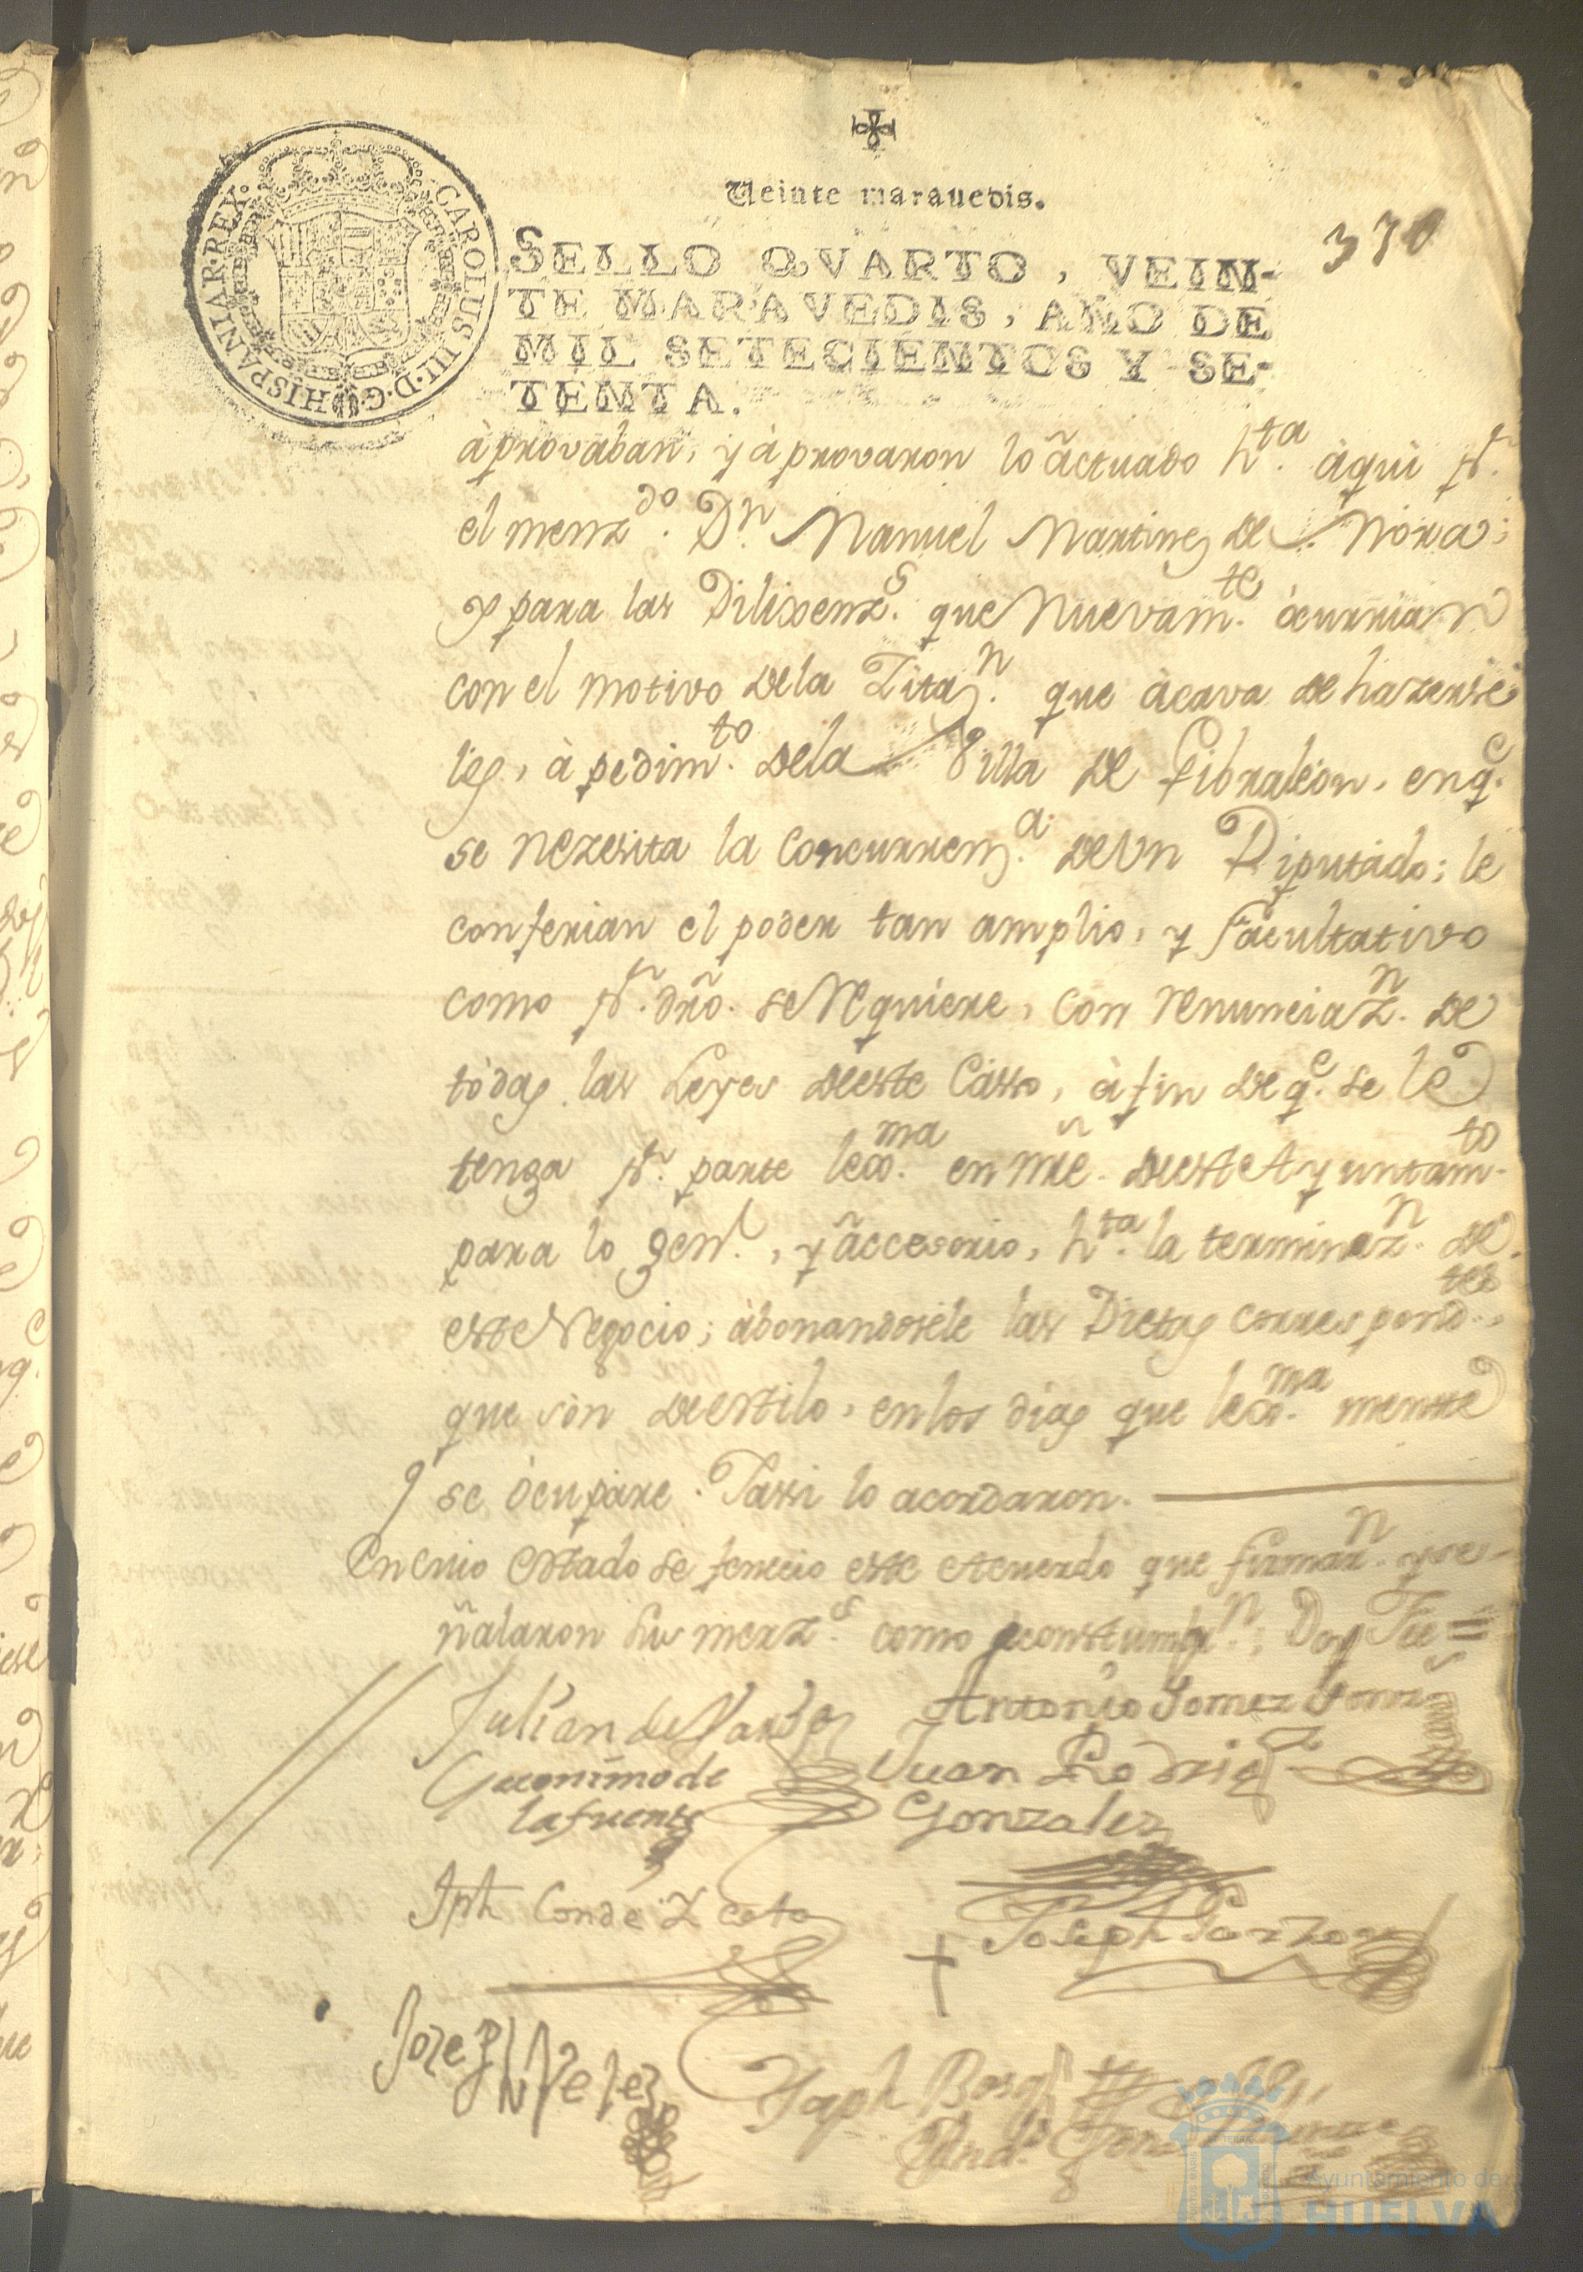 Veinte maravedis.
370
CAROLUS III·D·G·HISPANIAR·REX·
SELLO QVARTO, VEIN-
TE MARAVEDIS, AÑO DE
MIL SETECIENTOS Y SE-
TENTA.
àprovaban, y àprovaron lo actuado hta. àqui pr.
el menzdo. Dn. Manuel Martinez de Mora;
y para las Dilixenzs. que Nuevamte. òcurrian
con el motivo dela Zitazn. que àcava de hazerse
les, à pedimto. dela Villa de Gibraleon, enqe.
se nezesita la concurrenza. de Vn Diputado; le
conferian el poder tan amplio, y facultativo
como pr. dro. se Requiere, con renunciazn. de
tòdas las Leyes deeste Casso, à fin de qe. se le
tenga pr. parte lexma. en nre. deeste Ayuntamto.
para lo genl., y accesorio, hta. la terminazn. de
este Negocio; àbonandosele las Dietas correspondtes.,
que son deestilo, enlos dias que lexma. mente
se òcupare. Yassi lo acordaron.
En cuio estado se fenecio este Acuerdo que firmarn. y se-
ñalaron sus merzs. como acostumbrn.; Doy Fee =
Julian de
Antonio Gomez
Geronimo de
la fuente
Juan Rodrigz
Gonzalez
Jph Conde Zeeta
Joseph Garzon
Jozeph Velez
Ayuntamiento de
HUELVA